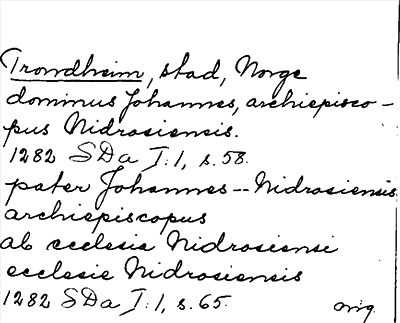 Trondheim, stad, Norge
dominus Johannes, archiepisco-
pus Nidrosiensis.
1282 SDa I:1, s. 58.
pater Johannes -- Nidrosiensis
archiepiscopus
ab ecclesia Nidrosiensi
ecclesie Nidrosiensis
1282 SDa I:1, s. 65. orig.